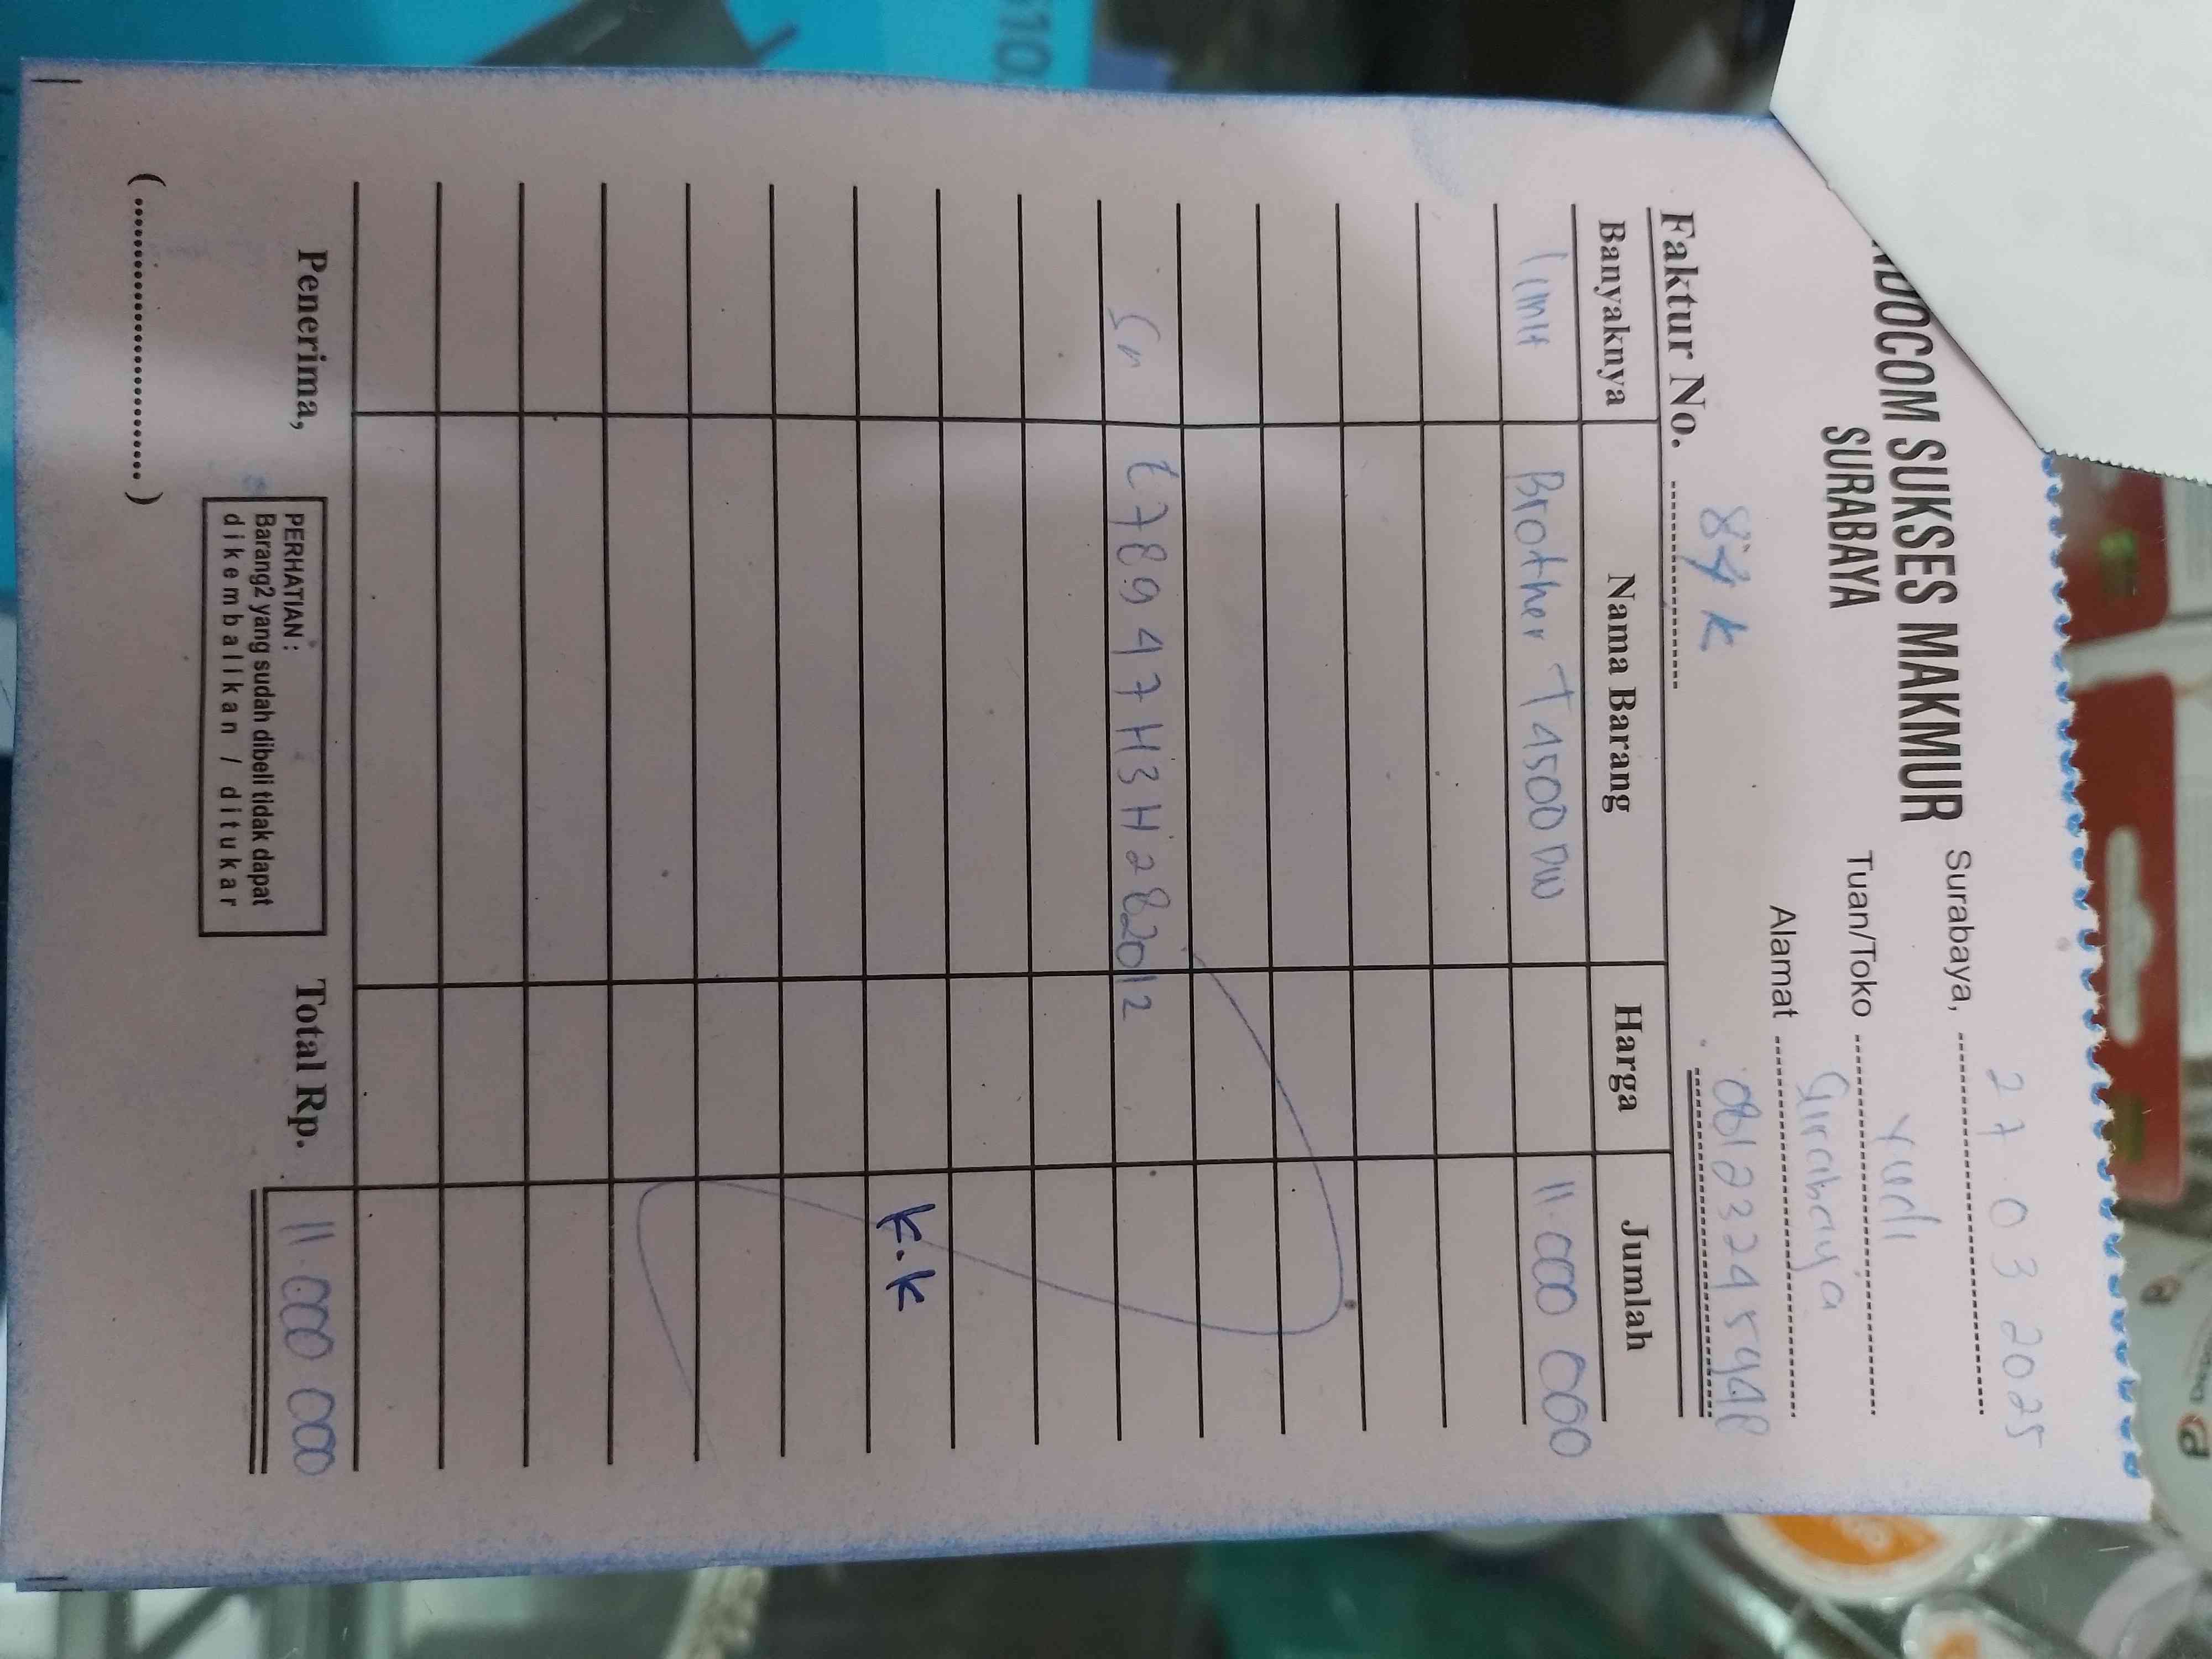 NDOCOM SUKSES MAKMUR
SURABAYA
Surabaya, 27 03 2025
Tuan/Toko Yudi
Alamat Surabaya
081232459418
Faktur No. 84 K
Banyaknya Nama Barang Harga Jumlah
1 unit Brother T4500 DW 11.000 000
Sn E78947H3H282012
K.K
Penerima,
Total Rp. 11.000 000
PERHATIAN :
Barang2 yang sudah dibeli tidak dapat
dikembalikan / ditukar
(........................)
510